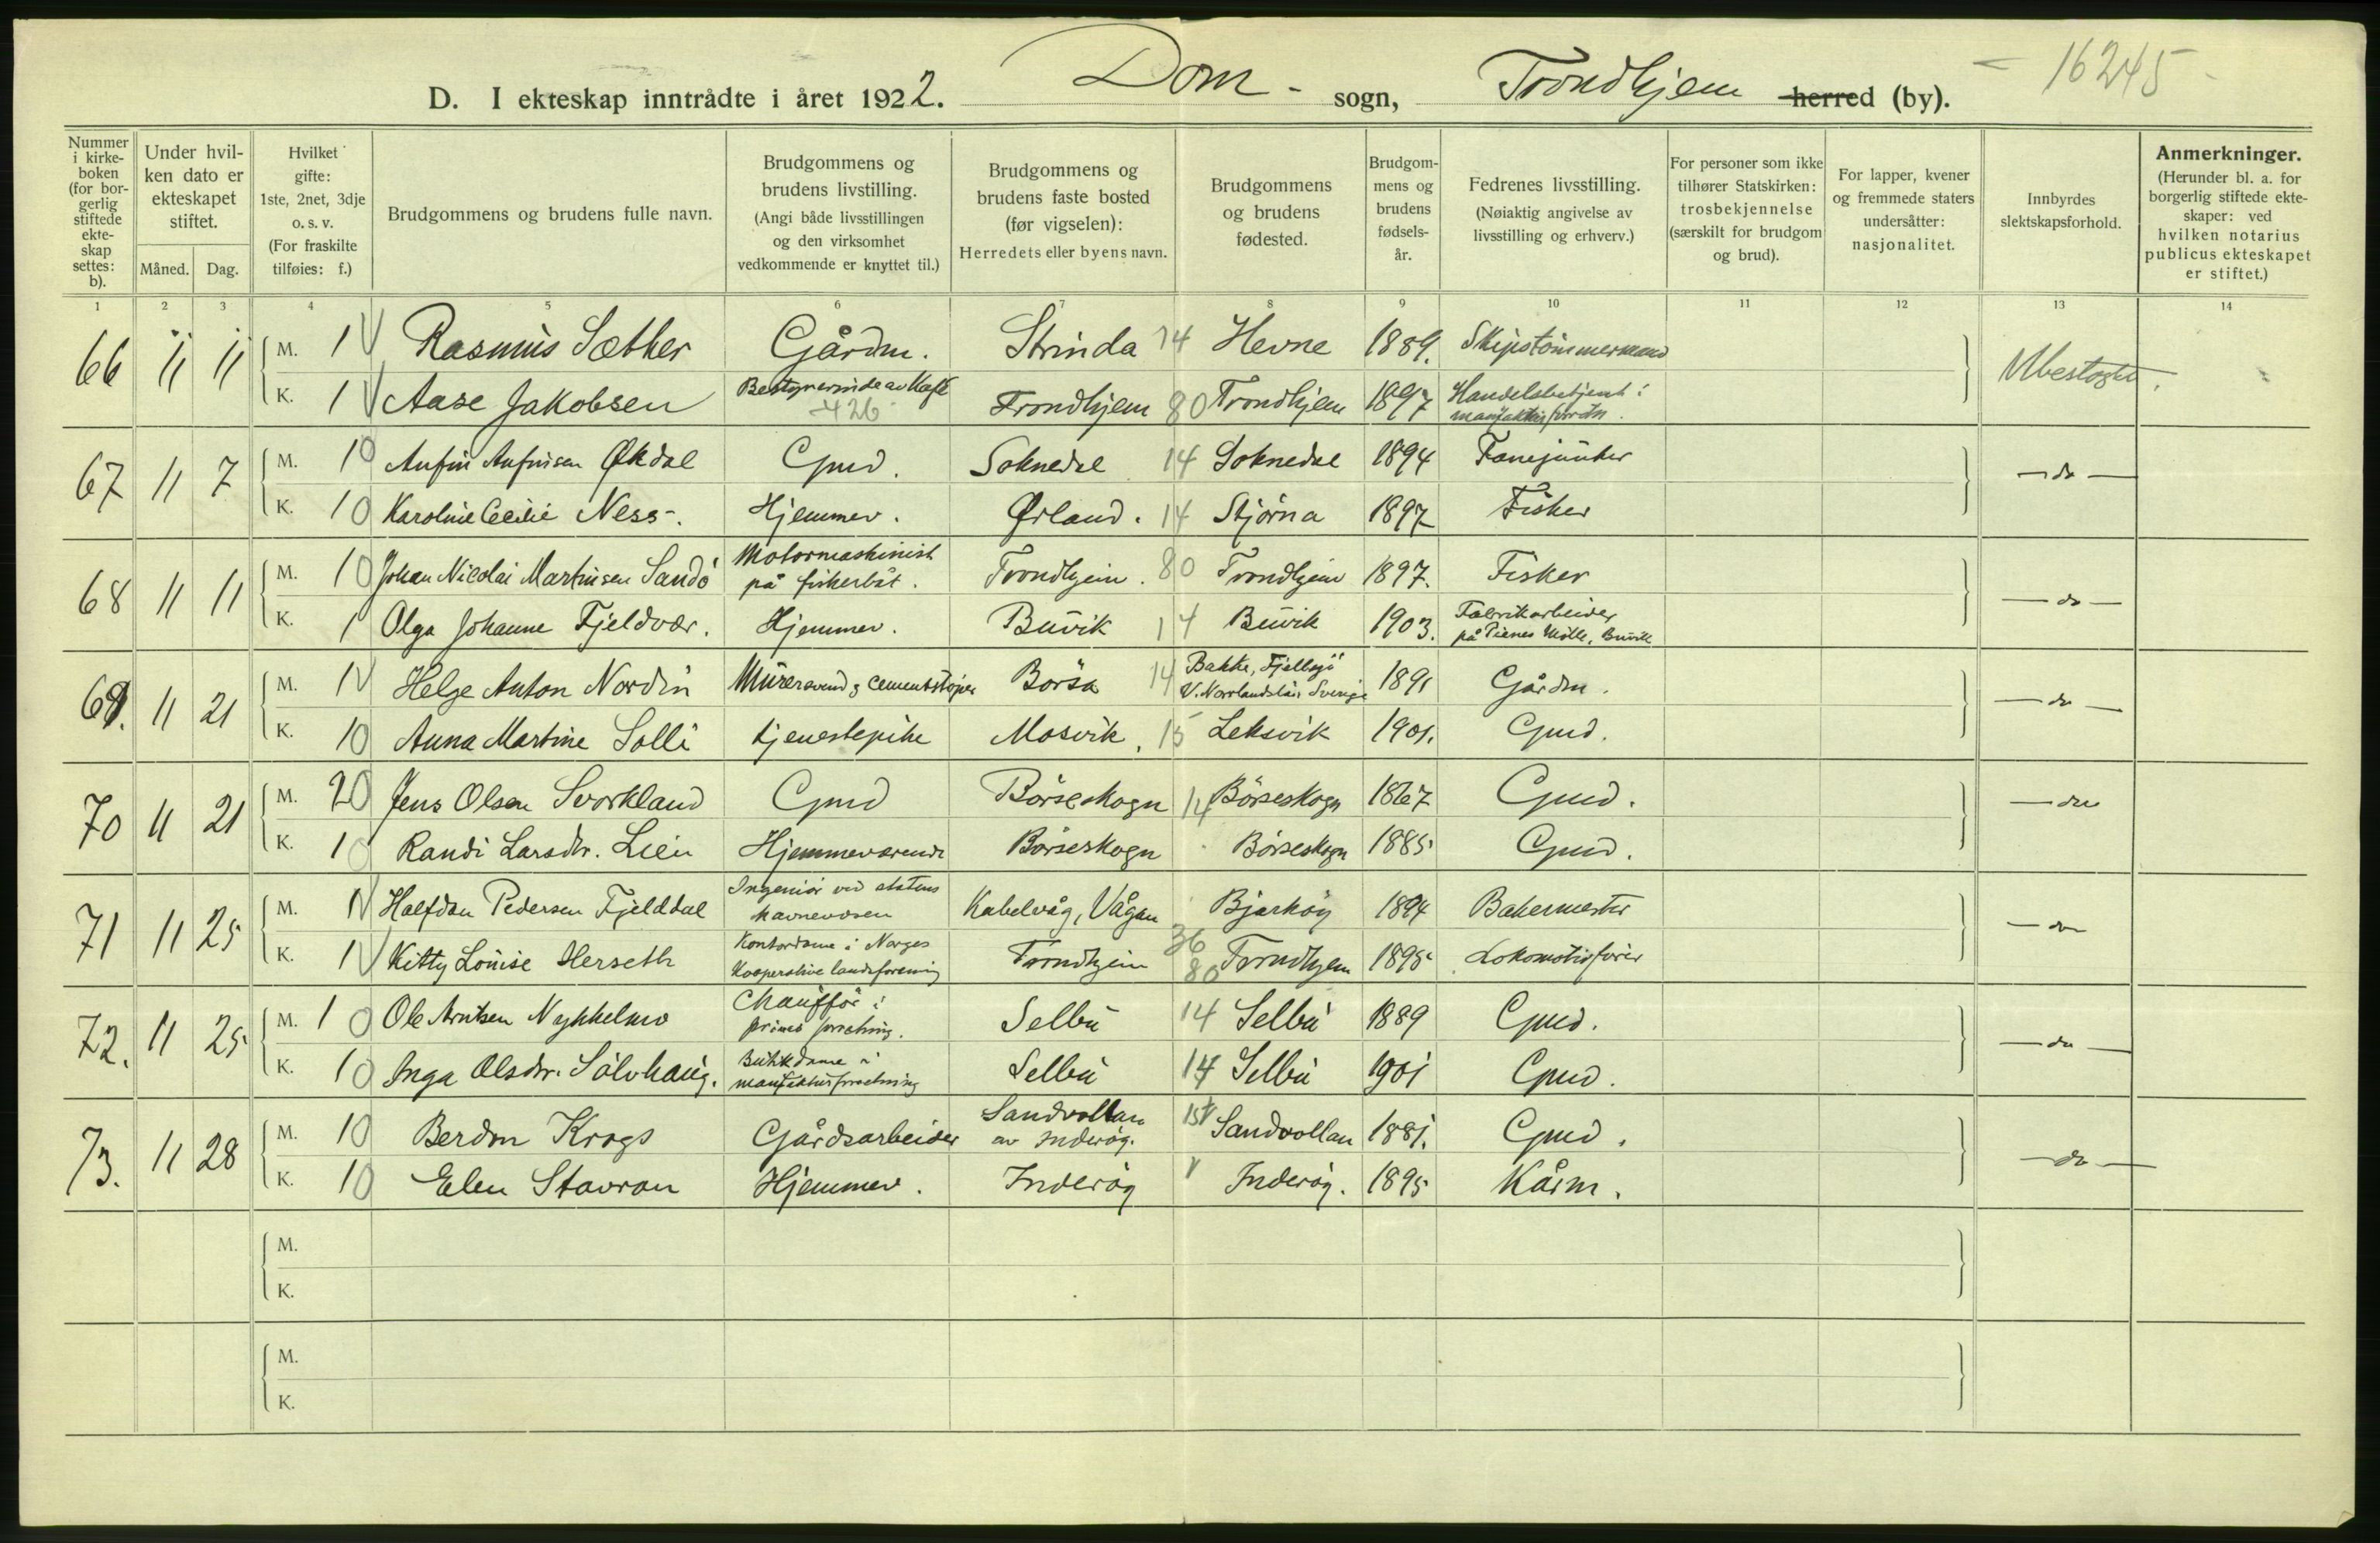 D. I ekteskap inntrådte i året 1922. Dom- sogn, Trondhjem herred (by). 16245
Nummer i kirkeboken (for borgerlig stiftede ekteskap settes: b).
Under hvilken dato er ekteskapet stiftet.
Måned. Dag.
Hvilket gifte: 1ste, 2net, 3dje o. s. v. (For fraskilte tilføies: f.)
Brudgommens og brudens fulle navn.
Brudgommens og brudens livstilling. (Angi både livsstillingen og den virksomhet vedkommende er knyttet til.)
Brudgommens og brudens faste bosted (før vigselen): Herredets eller byens navn.
Brudgommens og brudens fødested.
Brudgommens og brudens fødselsår.
Fedrenes livsstilling. (Nøiaktig angivelse av livsstilling og erhverv.)
For personer som ikke tilhører Statskirken: trosbekjennelse (særskilt for brudgom og brud).
For lapper, kvener og fremmede staters undersåtter: nasjonalitet.
Innbyrdes slektskapsforhold.
Anmerkninger. (Herunder bl. a. for borgerlig stiftede ekteskaper: ved hvilken notarius publicus ekteskapet er stiftet.)
1 2 3 4 5 6 7 8 9 10 11 12 13 14
66 11 11 M. 1 Rasmus Sæther Gårdm. Strinda 14 Hevne 1889. Skipstømmermand Ubeslogtet.
K. 1 Aase Jakobsen Bestyrerinde av Kafe 426 Trondhjem 80 Trondhjem 1897 Handelsbetjent i
67 11 7 M. 10 Anfin Anfinsen Økdal Gmd. Soknedal 14 Soknedal 1894 Fanejunker — do —
K. 10 Karoline Cecilie Ness. Hjemmev. Ørland. 14 Stjørna 1897 Fisker
68 11 11 M. 10 Johan Nicolai Martinsen Sandö Motormaskinist på fiskerbåt. Trondhjem. 80 Trondhjem 1897. Fisker — do —
K. 1 Olga Johanne Fjeldvær. Hjemmev. Buvik 14 Buvik 1903. Fabrikarbeider på Pienes Mölle, Buvik
69. 11 21 M. 1 Helge Anton Nordin Murersvend & Cementstöper Börsa 14 Bakke, Fjellsjö V. Norrlandslän Sverige 1891 Gårdm. — do —
K. 10 Anna Martine Solli tjenestepike Mosvik. 15 Leksvik 1901. Gmd.
70 11 21 M. 20 Jens Olsen Svorkland Gmd Börseskogn 14 Börseskogn 1867 Gmd. — do
K. 10 Randi Larsdtr. Lien Hjemmeværende Börseskogn Börseskogn 1885 Gmd.
71 11 25 M. 1 Halfdan Pedersen Fjelddal Ingeniör ved statens havnevæsen Kabelvåg, Vågan Bjarköy 1894 Bakermester — do
K. 1 Kitty Louise Herseth Kontordame i Norges Kooperative landsforening Trondhjem 36 80 Trondhjem 1895 Lokomotivförer
72. 11 25 M. 10 Ole Arntsen Nykkelmo Chaufför i forretning. Selbu 14 Selbu 1889 Gmd. — do —
K. 10 Inga Olsdtr. Sölvhaug. Butikdame i manufakturforretning Selbu 14 Selbu 1901 Gmd.
73. 11 28 M. 10 Berdon Krogs Gårdsarbeider Sandvollan av Inderöy. 15 Sandvollan 1881. Gmd. — do —
K. 10 Elen Stavran Hjemmev. Inderöy Inderöy. 1895 Kårm.
M.
K.
M.
K.